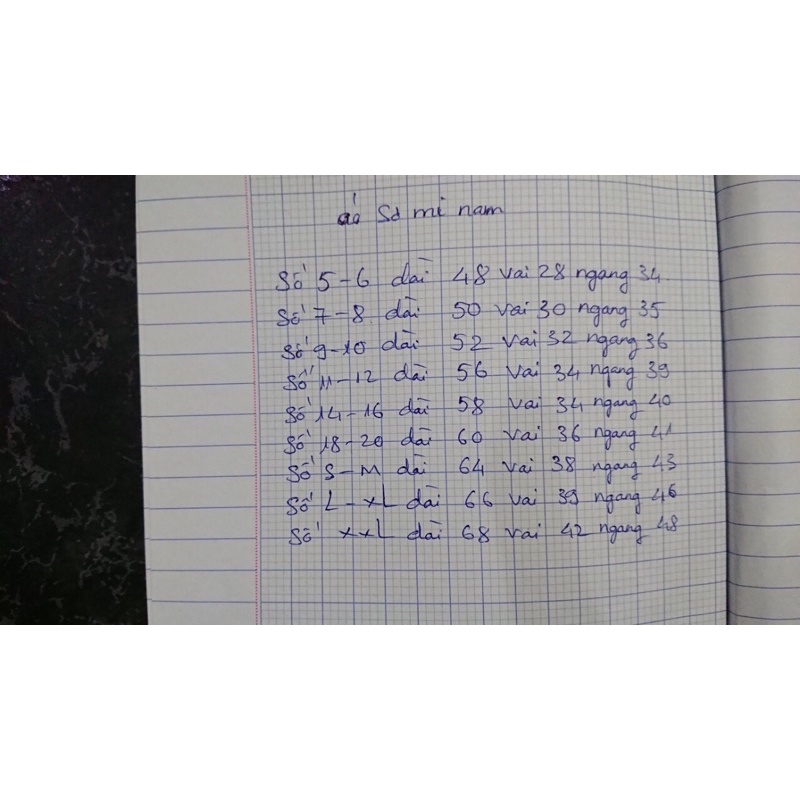 áo Sơ mi nam
Số 5-6 dài 48 vai 28 ngang 34
Số 7-8 dài 50 vai 30 ngang 35
Số 9-10 dài 52 vai 32 ngang 36
Số 11-12 dài 56 vai 34 ngang 39
Số 14-16 dài 58 vai 34 ngang 40
Số 18-20 dài 60 vai 36 ngang 41
Số S-M dài 64 vai 38 ngang 43
Số L-XL dài 66 vai 39 ngang 46
Số XXL dài 68 vai 42 ngang 48